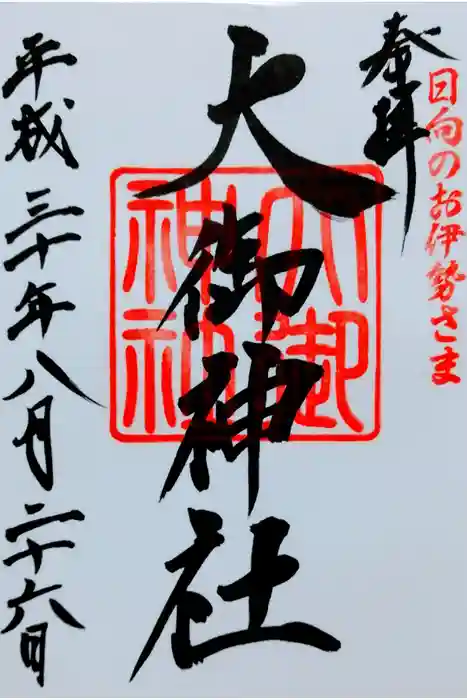 奉拝
日向のお伊勢さま
大御神社
大御神社
平成三十年八月二十六日